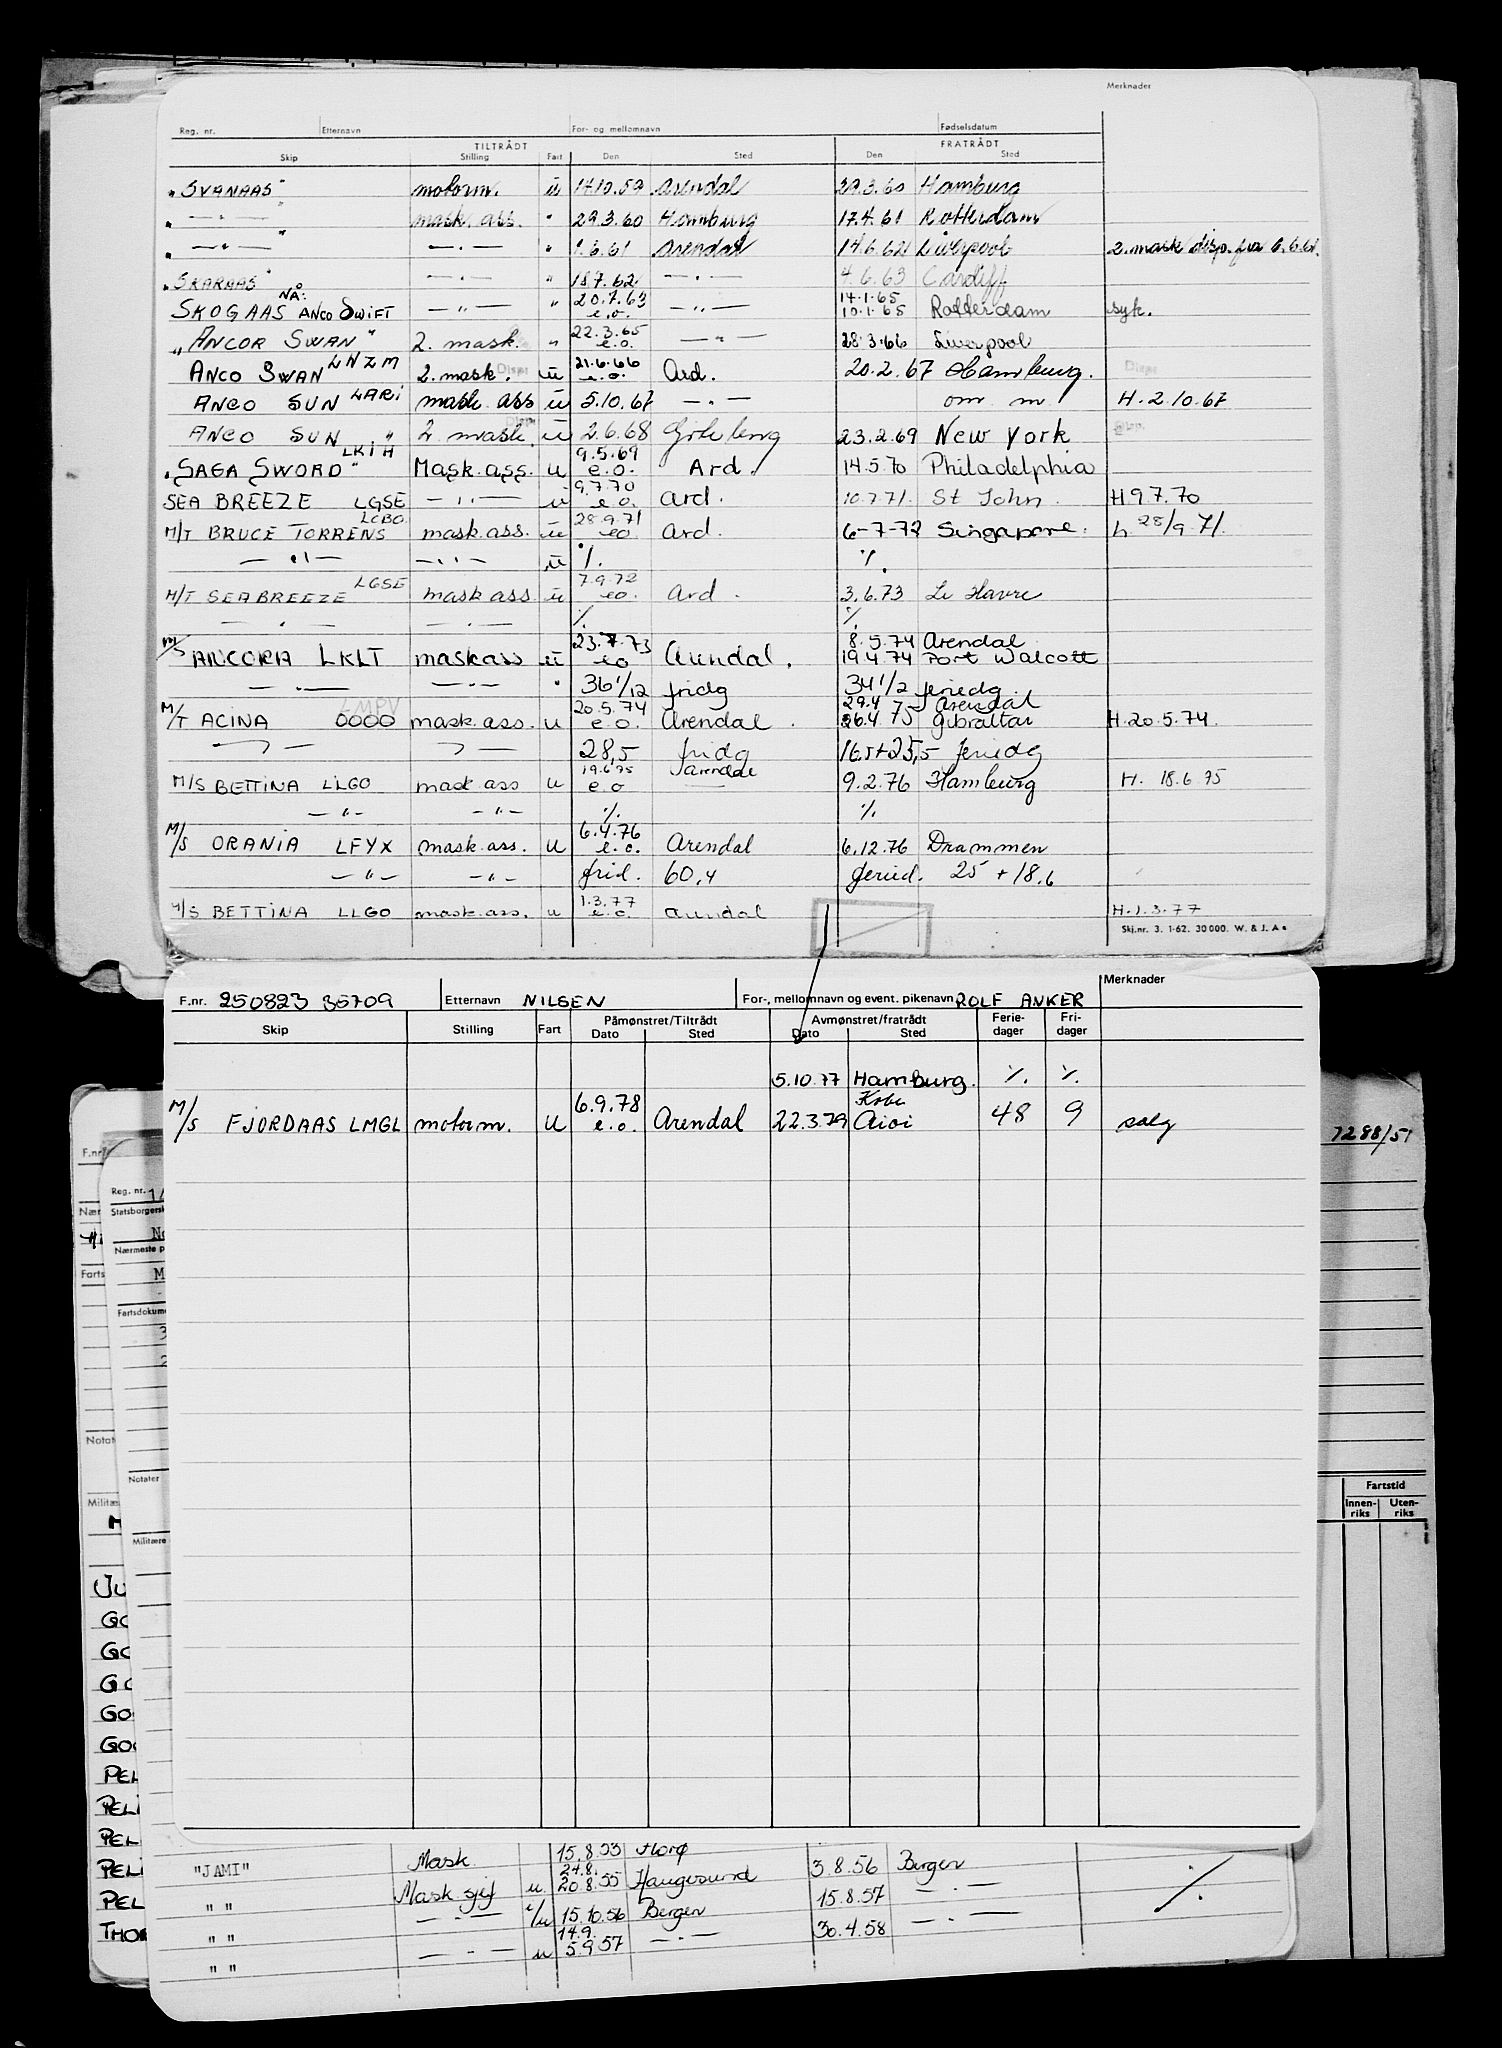 Merknader
Reg. nr. Etternavn For- og mellomnavn Fødselsdatum
TILTRÅDT FRATRÅDT
Skip Stilling Fart Den Sted Den Sted
"SVANAAS" motorm. u 14.10.59 Arendal 29.3.60 Hamburg
" — " — " mask. ass. " 29.3.60 Hamburg 17.4.61 Rotterdam
" — " — " — " — " 1.6.61 Arendal 14.6.62 Liverpool 2. mask disp. fra 6.6.61.
"SKARAAS" — " — " 18.7.62 — " — 4.6.63 Cardiff
SKOGAAS NÅ: ANCO SWIFT — " — " 20.7.63 e.o. — " — 14.1.65 10.1.65 Rotterdam syk.
"ANCOR SWAN" 2. mask. " 22.3.65 e.o. — " — 28.3.66 Liverpool
ANCO SWAN LNZM 2. mask. Disp. u 21.6.66 e.o. Ard. 20.2.67 Hamburg. Disp.
ANCO SUN LARI mask. ass u 5.10.67 — " — om. m. H. 2.10.67
ANCO SUN " 2. mask. u 2.6.68 Göteborg 23.2.69 New York
"SAGA SWORD" LKIH Mask. ass. u 9.5.69 e.o. Ard. 14.5.70 Philadelphia
SEA BREEZE LGSE — " — u 9.7.70 e.o. Ard. 10.7.71. St John. H 9.7.70
M/T BRUCE TORRENS LCBO mask.ass. u 28.9.71 eo Ard. 6-7-72 Singapore. h 28/9 71.
— " — — " — u % %
M/T SEABREEZE LGSE mask ass. u 7.9.72 eo. Ard. 3.6.73 Le Havre
— " — — " — % %
M/S ANCORA LKLT maskass u 23.7.73 eo Arendal. 8.5.74 Arendal 19.4.74 Port Walcott
— " — — " — " 36 1/12 fridg 34 1/2 feriedg.
M/T ACINA LMPV 0000 mask.ass. u 20.5.74 e.o. Arendal. 29.4 26.4 75 Arendal Gibraltar H. 20.5.74.
— " — — " — 28,5 fridg 16,5+23,5 feriedg
M/S BETTINA LLGO mask ass u 19.6.75 e o Arendal 9.2.76 Hamburg H. 18.6.75
— " — — " — % %
M/S ORANIA LFYX mask.ass. u 6.4.76 e.o. Arendal 6.12.76 Drammen
— " — — " — frid. 60,4 feried. 25 + 18,6
M/S BETTINA LLGO mask.ass. u 1.3.77 e.o. Arendal H. 1.3.77
Skj.nr. 3. 1-62. 30 000. W. & J. A.s
F.nr. 250823 35709 Etternavn NILSEN For-, mellomnavn og event. pikenavn ROLF ANKER Merknader
Skip Stilling Fart Påmønstret/Tiltrådt Dato Sted Avmønstret/fratrådt Dato Sted Ferie-dager Fri-dager
5.10.77 Hamburg. % %
M/S FJORDAAS LMGL motorm. u 6.9.78 e.o. Arendal 22.3.79 Kobe Aioi 48 9 salg
7288/51
F.nr
Reg. nr. 1
Nær
Statsborgersk
No
Nærmeste p
Farts
M
Fartsdokume
3
2
Notat
Notater
Militæ
Militære
Fartstid
Innen-riks Uten-riks
JU
GO
GO
GO
GO
GOO
PEL
PEL
PEL
PEL
PEL
THOR
"JAMI" Mask 15.8.53 Florø
" " Mask sjef u 24.8. 20.8.55 Haugesund 3.8.56 Bergen %
" " — " — i/u 15.10.56 Bergen 15.8.57 — " —
" " — " — u 14.9. 5.9.57 — " — 30.4.58 — " —